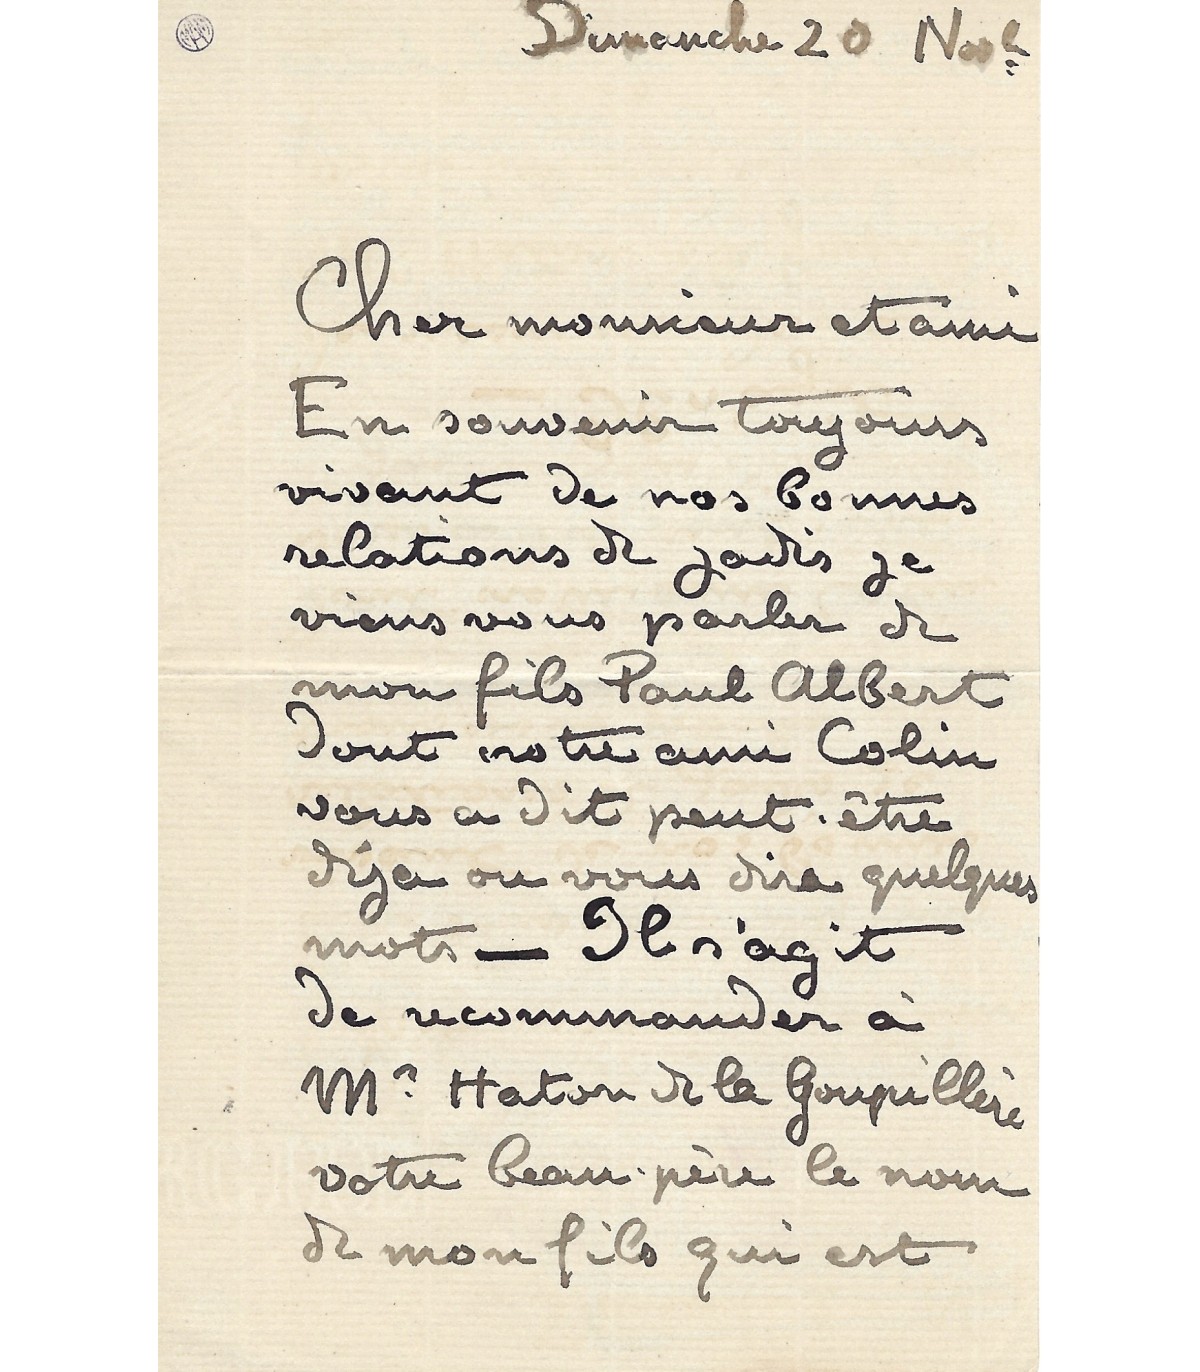 Dimanche 20 Nov.bre
Cher monsieur et ami
En souvenir toujours
vivant de nos bonnes
relations de jadis je
viens vous parler de
mon fils Paul Albert
dont notre ami Colin
vous a dit peut-être
déja ou vous dira quelques
mots — Il s'agit
de recommander à
Mr. Haton de la Goupillère
votre beau-père le nom
de mon fils qui est